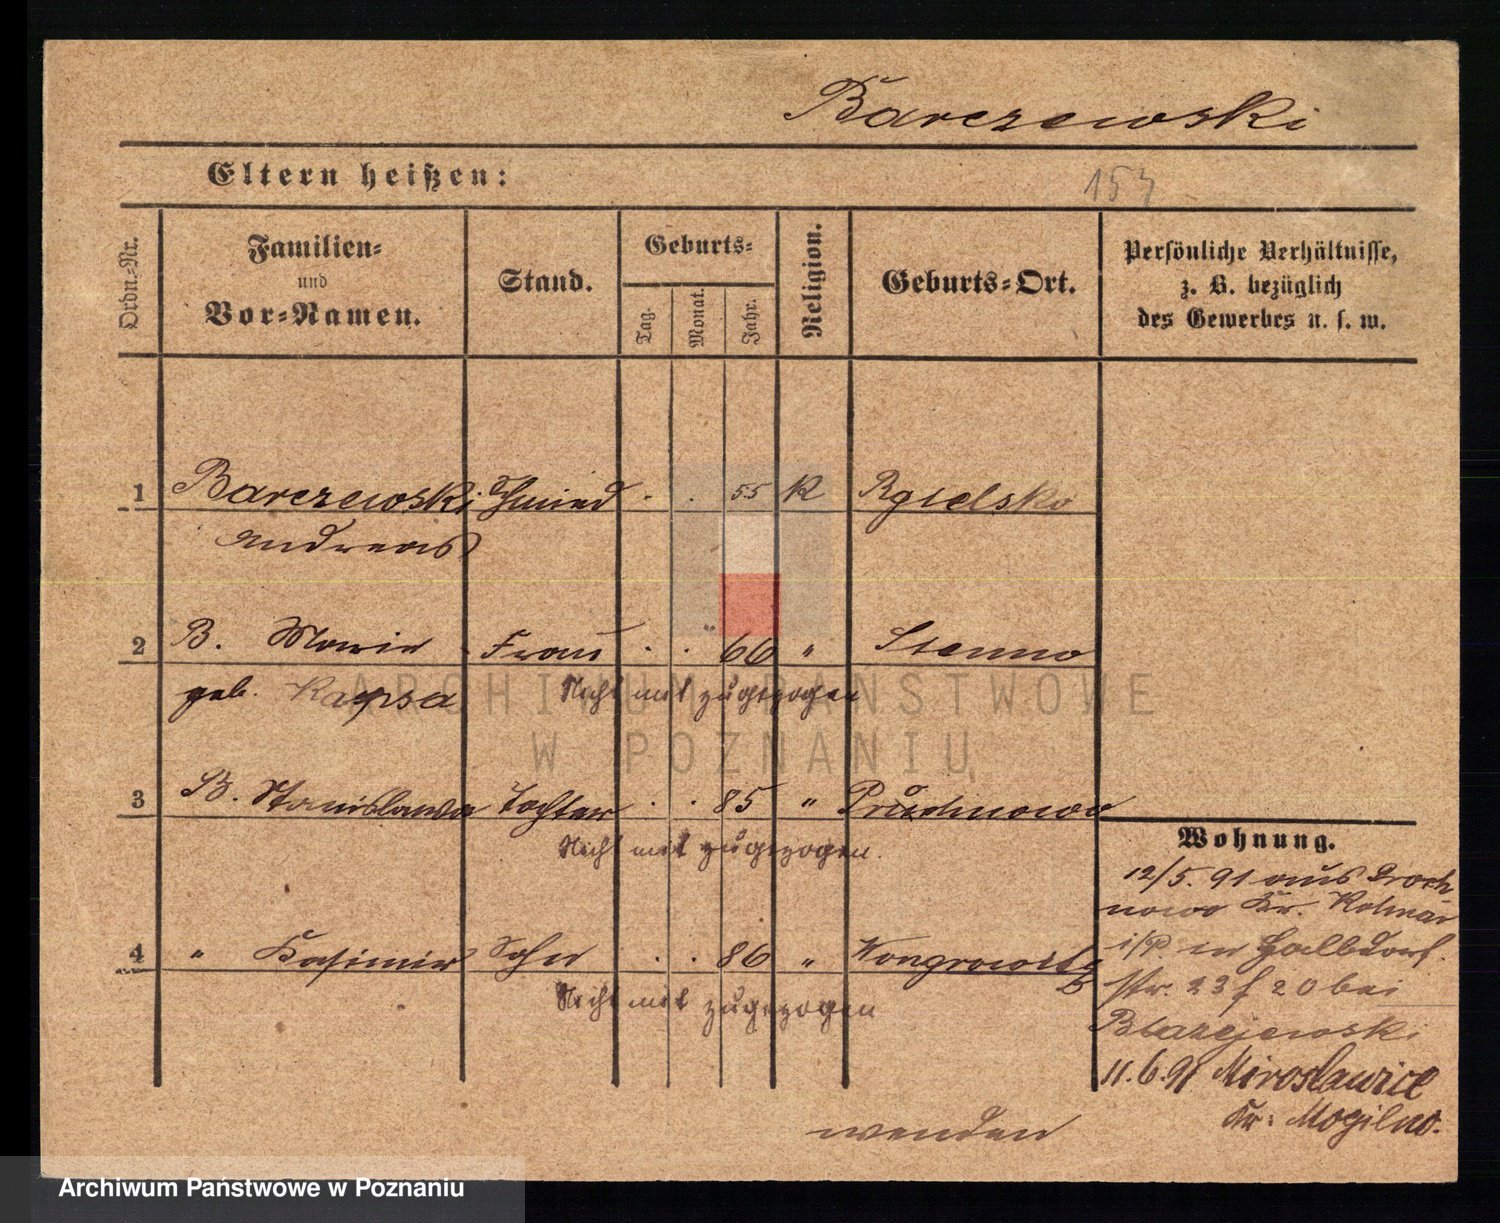 Barczewski
Eltern heißen:
157
Ordn.-Nr.
Familien-
und
Vor-Namen.
Stand.
Geburts-
Tag.
Monat.
Jahr.
Religion.
Geburts-Ort.
Persönliche Verhältnisse,
z. B. bezüglich
des Gewerbes u. s. w.
1 Barczewski Schmied . . 55 K Rgielsko
Andreas
2 B. Maria Frau . . 66 " Stenno
geb.
Nicht mit zugezogen
3 B. Stanislawa Tochter . . 85 "
Nicht mit zugezogen.
4 " Kasimir Sohn . . 86 " Wongrowitz
Nicht mit zugezogen
Wohnung.
12/5. 91 aus Proch
nowo Kr. Kolmar
i/P in Halbdorf
str. 23 f 20 bei
Blazejewski.
11.6.91 Miroslawice
Kr. Mogilno.
wenden
ARCHIWUM PAŃSTWOWE
W POZNANIU
Archiwum Państwowe w Poznaniu